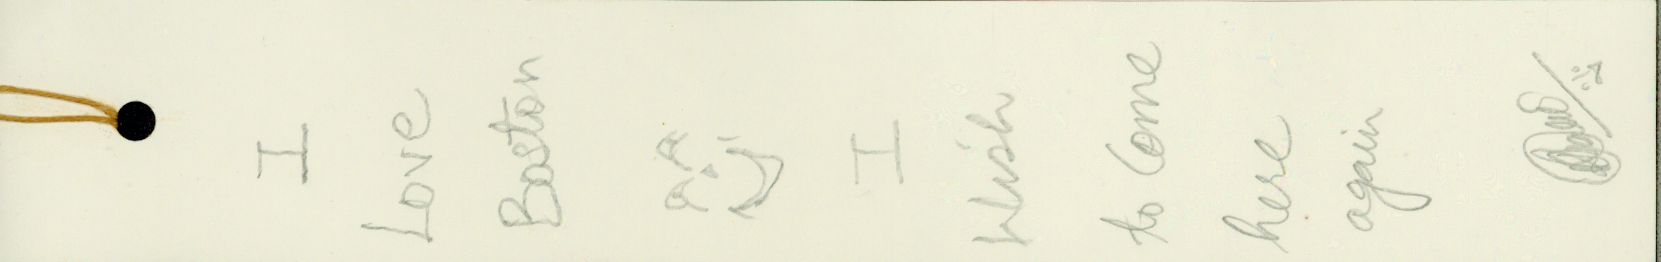 I
Love
Boston
I
Wish
to Come
here
again